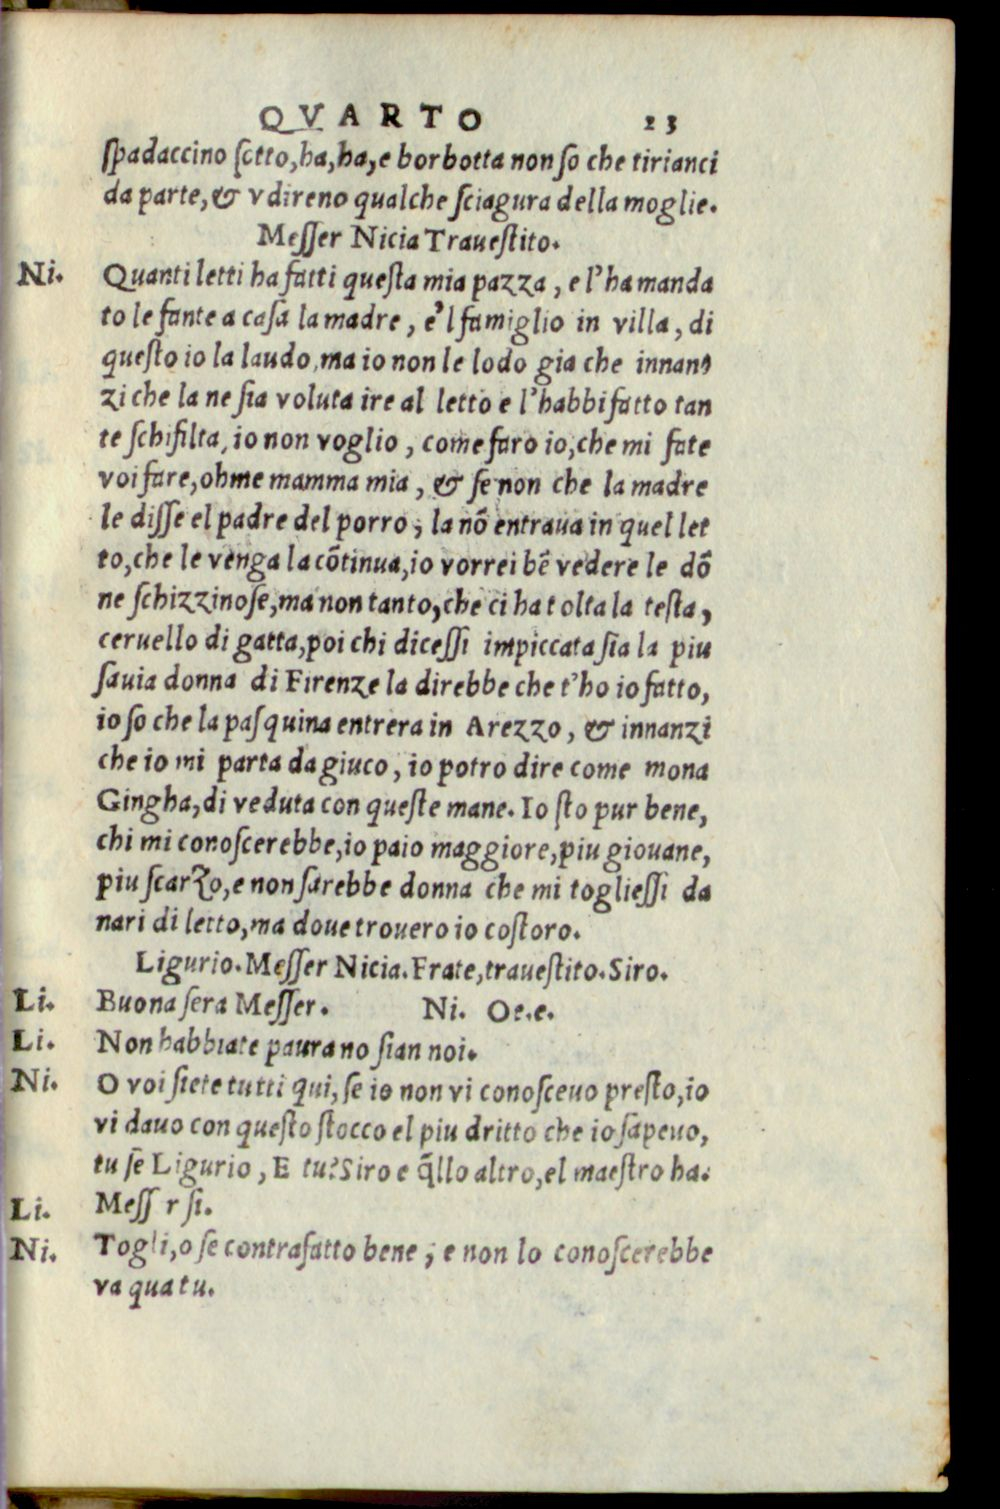 QVARTO 23
ſpadaccino ſotto, ha, ha, e borbotta non ſo che tirianci
da parte, & vdireno qualche ſciagura della moglie.
Meſſer Nicia Traueſtito.
Ni. Quanti letti ha fatti queſta mia pazza, e l'ha manda
to le fante a caſa la madre, e'l famiglio in villa, di
queſto io la laudo, ma io non le lodo gia che innan-
zi che la ne ſia voluta ire al letto e l'habbi fatto tan
te ſchifilta, io non voglio, come faro io, che mi fate
voi fare, ohme mamma mia, & ſe non che la madre
le diſſe el padre del porro, la nō entraua in quel let
to, che le venga la cōtinua, io vorrei bē vedere le dō
ne ſchizzinoſe, ma non tanto, che ci ha tolta la teſta,
ceruello di gatta, poi chi diceſſi impiccata ſia la piu
ſauia donna di Firenze la direbbe che t'ho io fatto,
io ſo che la paſquina entrera in Arezzo, & innanzi
che io mi parta da giuco, io potro dire come mona
Gingha, di veduta con queſte mane. Io ſto pur bene,
chi mi conoſcerebbe, io paio maggiore, piu giouane,
piu ſcarzo, e non ſarebbe donna che mi toglieſſi da
nari di letto, ma doue trouero io coſtoro.
Ligurio. Meſſer Nicia. Frate, traueſtito. Siro.
Li. Buona ſera Meſſer. Ni. Oe.e.
Li. Non habbiate paura no ſian noi.
Ni. O voi ſiete tutti qui, ſe io non vi conoſceuo preſto, io
vi dauo con queſto ſtocco el piu dritto che io ſapeuo,
tu ſē Ligurio, E tu? Siro e q̄llo altro, el maeſtro ha.
Li. Meſſ r ſi.
Ni. Togli, o ſe contrafatto bene, e non lo conoſcerebbe
va qua tu.